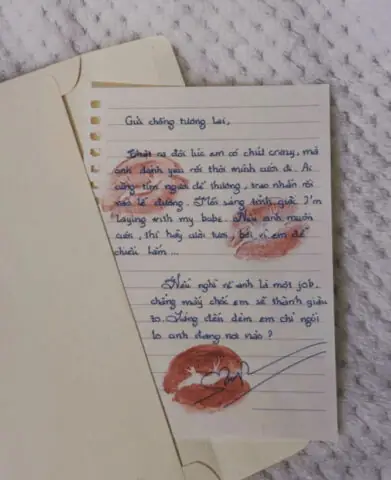 Gửi chồng tương lai,
Thật ra đôi lúc em có chút crazy, mà
anh định yêu rồi thời mình cưới đi. Ai
cũng tìm người dễ thương, trao nhẫn rồi
vào lễ đường. Mỗi sáng tỉnh giấc I'm
laying with my babe. Nếu anh muốn
cưới, thì hãy cười tươi, bởi vì em dễ
chiều lắm ...
Nếu nghĩ về anh là một job,
chẳng mấy chốc em sẽ thành giàu
to. Sáng đến đêm em chỉ ngồi
lo anh đang nơi nào ?